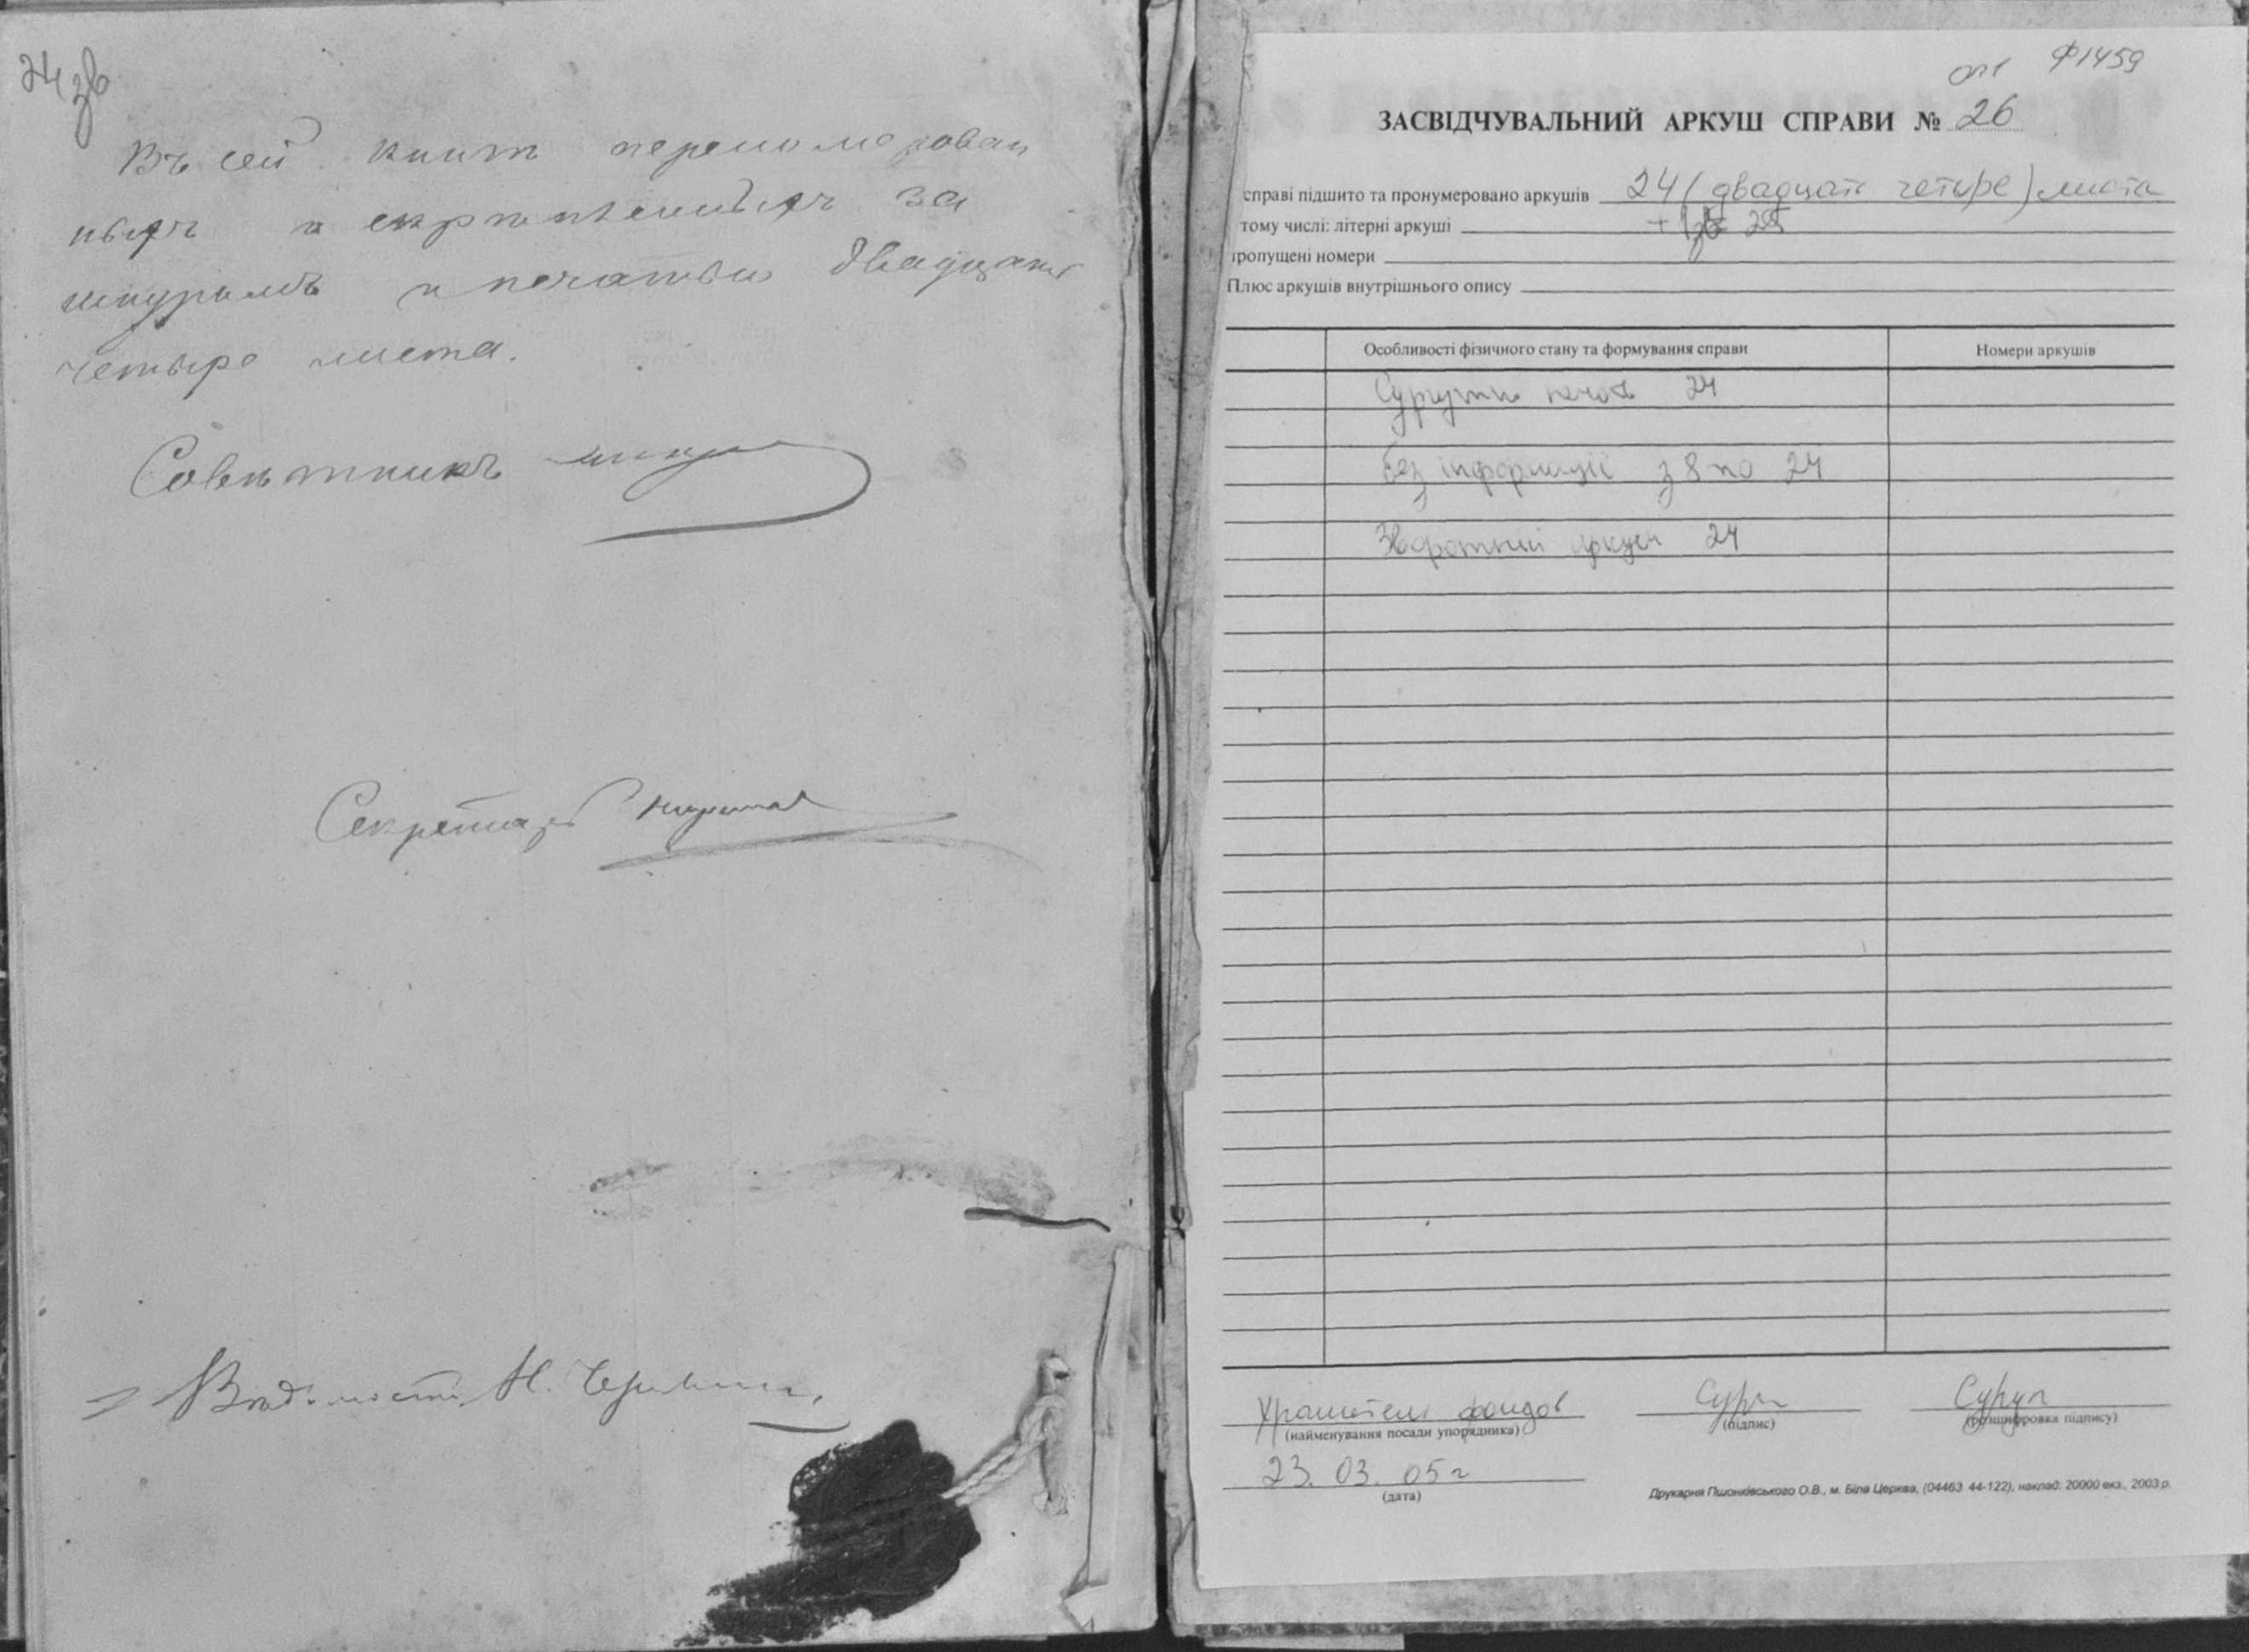 24 зв
Въ сей книги перенумерован
ныхъ и скрепленныхъ за
шнуромъ и печатью двадцать
четыре листа.
Советникъ
Секретарь
Н.
оп1 Ф1459
ЗАСВІДЧУВАЛЬНИЙ АРКУШ СПРАВИ № 26
справі підшито та пронумеровано аркушів 24 (двадцать четыре) листа
тому числі: літерні аркуші + 1
пропущені номери
Плюс аркушів внутрішнього опису
Особливості фізичного стану та формування справи
Номери аркушів
Сургучна печать 24
Без інформації з 8 по 24
Зворотний аркуш 24
Хранитель фондов
(найменування посади упорядника)
(підпис)
(розшифровка підпису)
23. 03. 05 г
(дата)
Друкарня Пшонківського О.В., м. Біла Церква, (04463 44-122), наклад: 20000 екз., 2003 р.